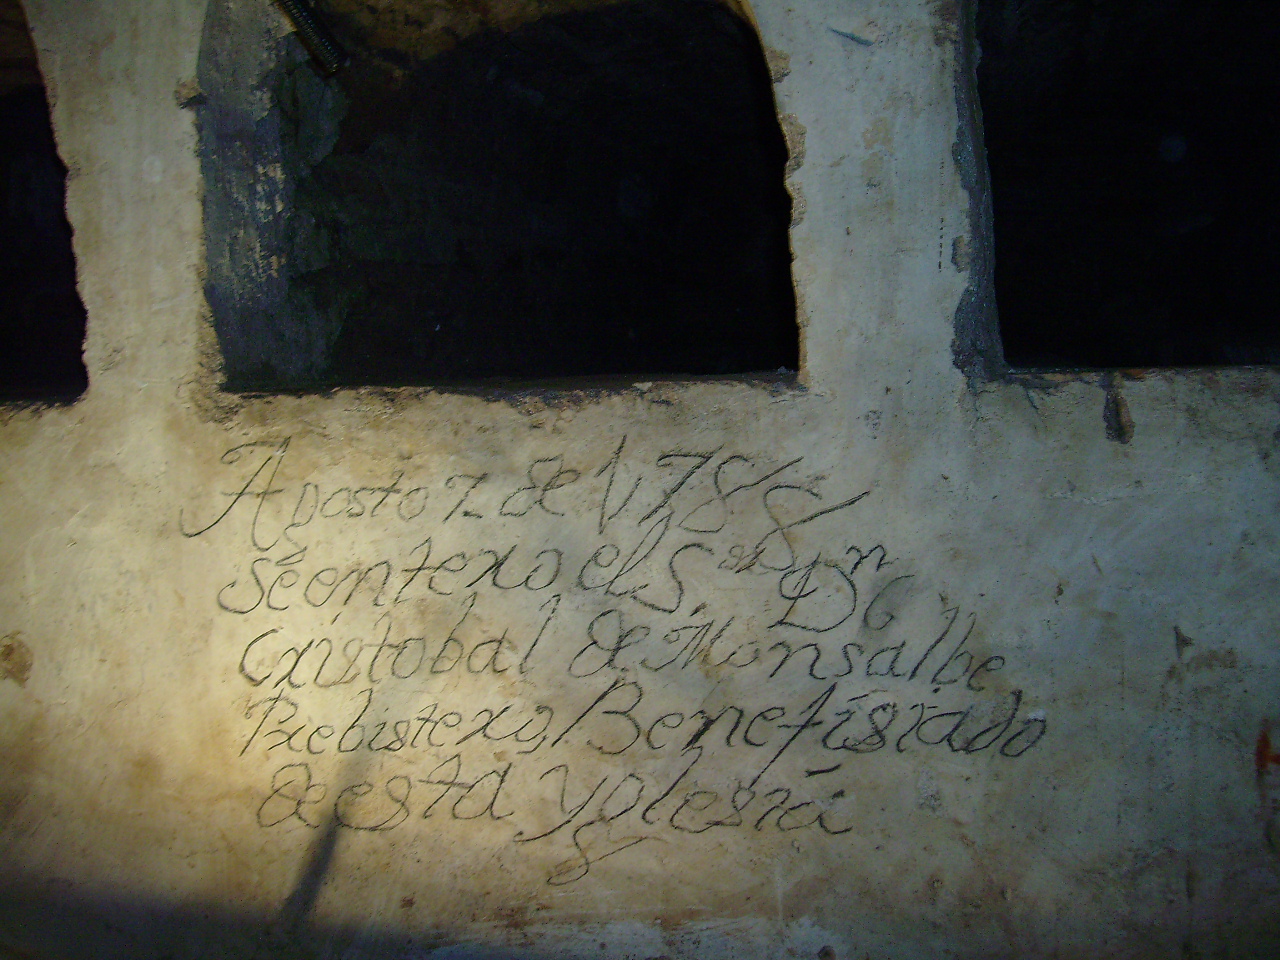 Agosto 7 de 1788
Se entexo el S.or Dn
Cxistobal de Monsalbe
Pxebistexo, Benefisiado
de esta yglesia